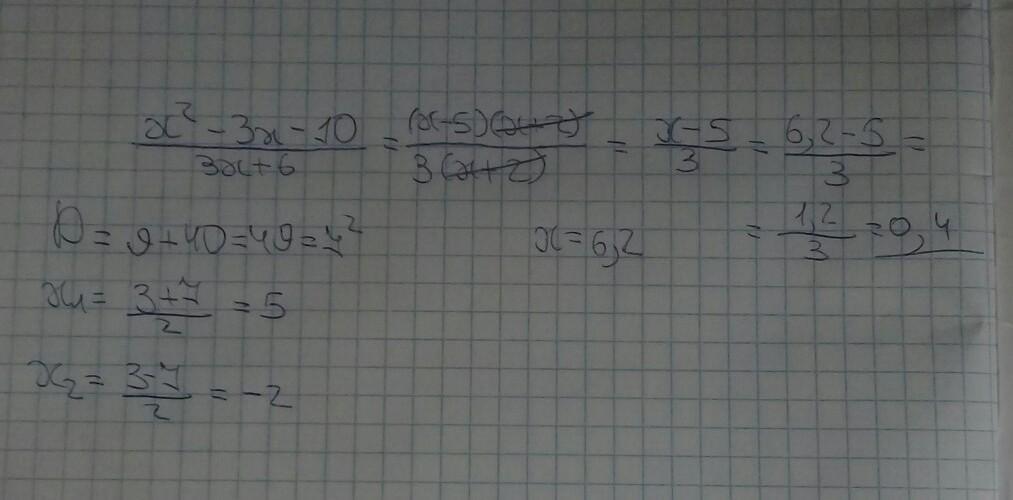 x² - 3x - 10 / 3x + 6 = (x-5)(x+2) / 3(x+2) = x-5 / 3 = 6,2-5 / 3 =
D = 9+40=49=7² x=6,2 = 1,2 / 3 = 0,4
x₁ = 3+7 / 2 = 5
x₂ = 3-7 / 2 = -2